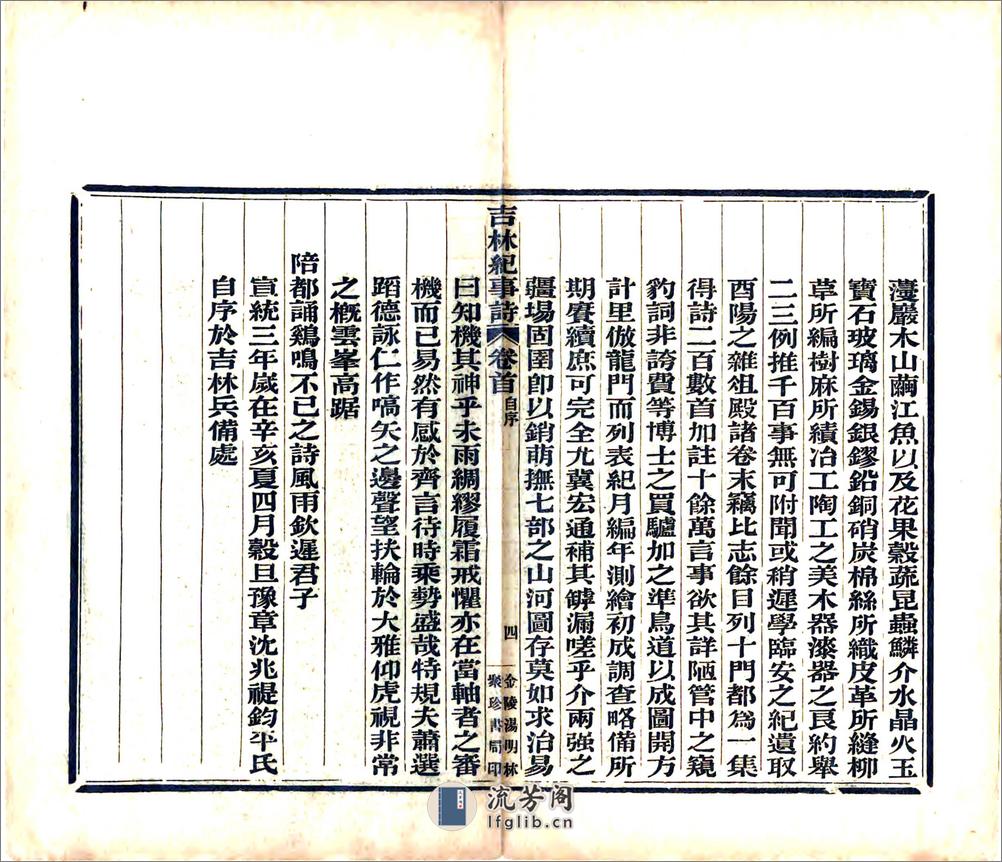 薓巖木山繭江魚以及花果穀蔬昆蟲鱗介水晶火玉
寶石玻璃金錫銀鏐鉛銅硝炭棉絲所織皮革所縫柳
草所編樹麻所績冶工陶工之美木器漆器之良約舉
二三例推千百事無可附聞或稍遲學臨安之紀遺取
酉陽之雜俎殿諸卷末竊比志餘目列十門都為一集
得詩二百數首加註十餘萬言事欲其詳陋管中之窺
豹詞非誇費等博士之買驢加之準鳥道以成圖開方
計里倣龍門而列表紀月編年測繪初成調查略備所
期賡續庶可完全尤冀宏通補其罅漏嗟乎介兩強之
疆場固圉卽以銷萌撫七部之山河圖存莫如求治易
吉林紀事詩 卷首 自序 四 金陵湯明林聚珍書局印
曰知機其神乎未雨綢繆履霜戒懼亦在當軸者之審
機而已易然有感於齊言待時乘勢盛哉特規夫蕭選
蹈德詠仁作嚆矢之邊聲望扶輪於大雅仰虎視非常
之概雲峯高踞
陪都誦鷄鳴不已之詩風雨欽遲君子
宣統三年歲在辛亥夏四月穀旦豫章沈兆禔鈞平氏
自序於吉林兵備處
流芳阁
lfglib.cn